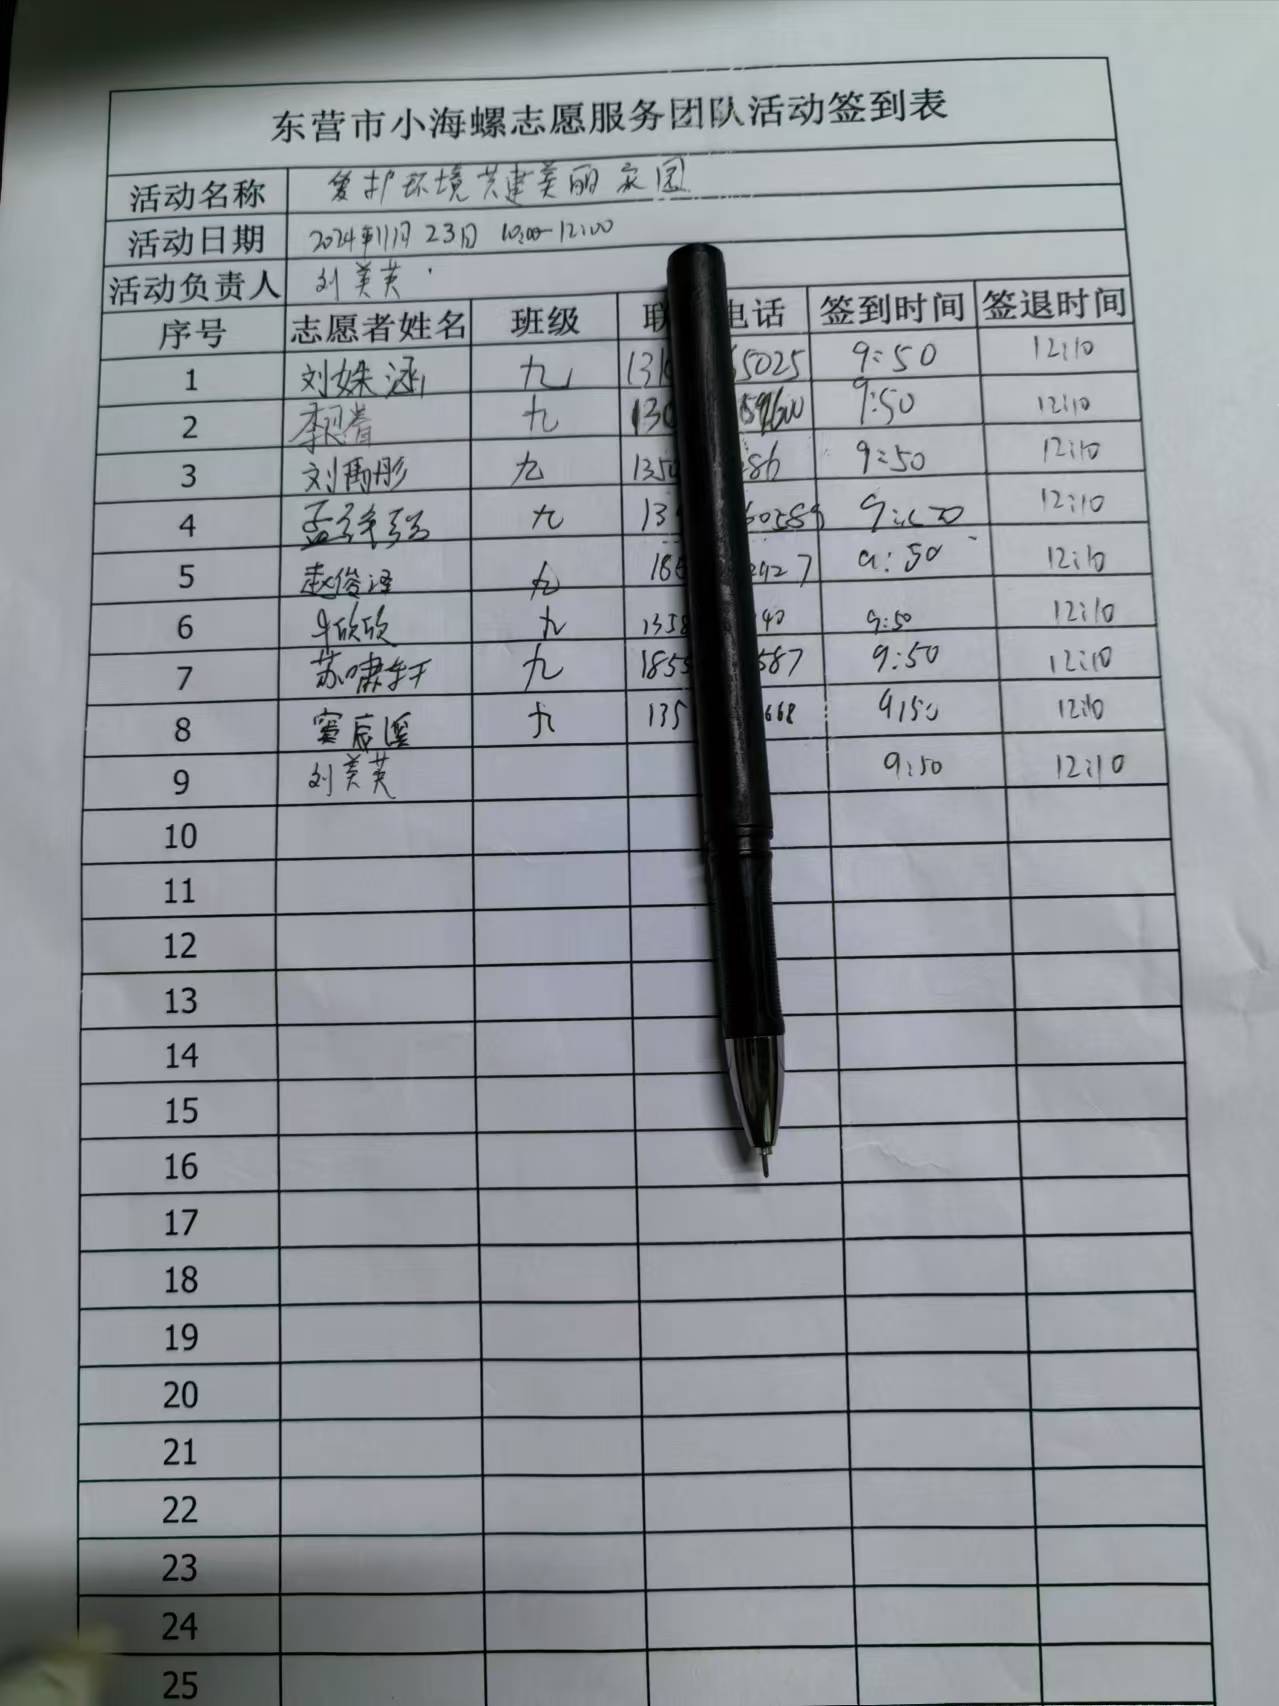 东营市小海螺志愿服务团队活动签到表
活动名称 爱护环境共建美丽家园
活动日期 2024年11月23日 10:00-12:00
活动负责人 刘美英
序号 志愿者姓名 班级 联 电话 签到时间 签退时间
1 刘姝涵 九 131 5025 9:50 12:10
2 九 130 9600 9:50 12:10
3 刘禹彤 九 1350 86 9:50 12:10
4 九 13 60589 9:50 12:10
5 赵俊泽 九 18 2927 9:50 12:10
6 牛欣欣 九 1358 40 9:50 12:10
7 苏啸轩 九 1855 587 9:50 12:10
8 窦辰溪 九 135 668 9:50 12:10
9 刘美英 9:50 12:10
10
11
12
13
14
15
16
17
18
19
20
21
22
23
24
25